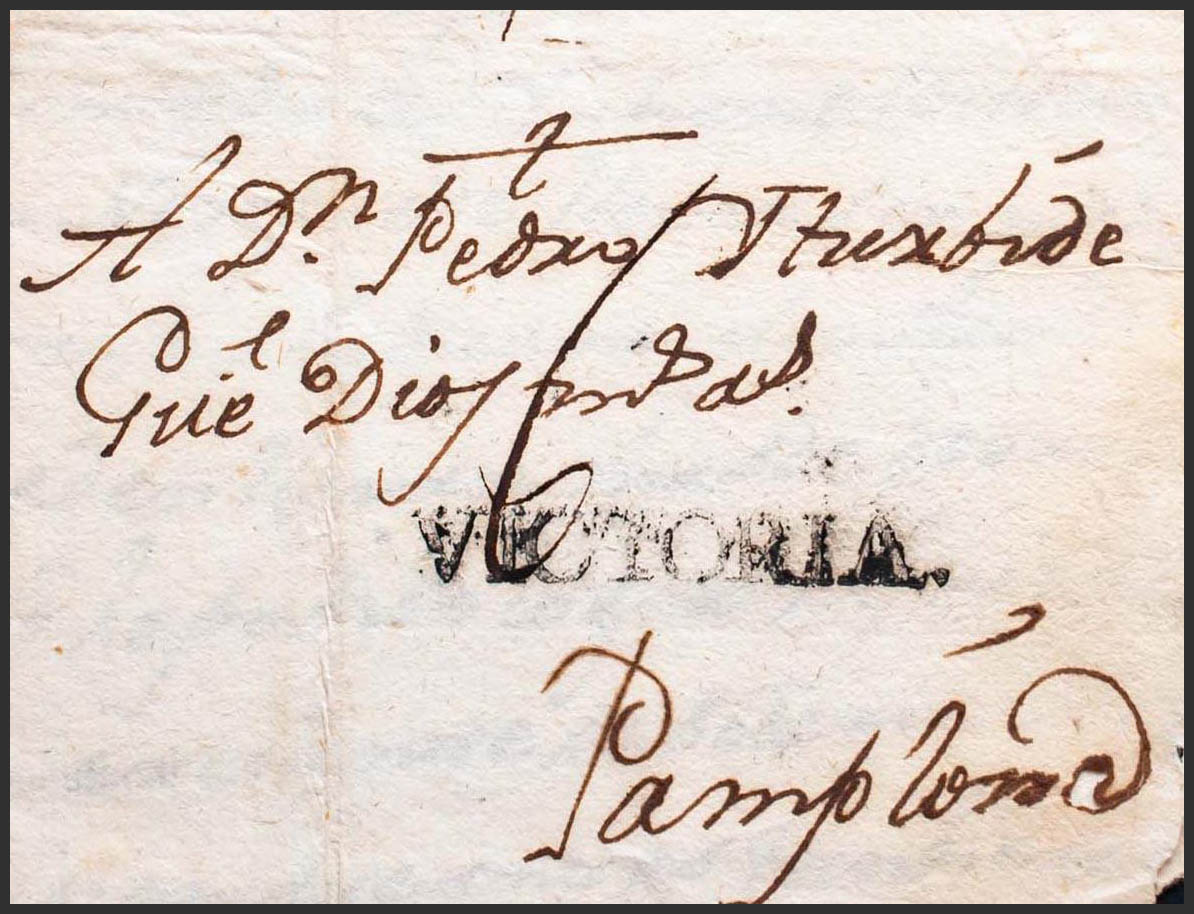 A Dn. Pedro Yturbide
Gue l Dios m s as.
VICTORIA.
Pamplona